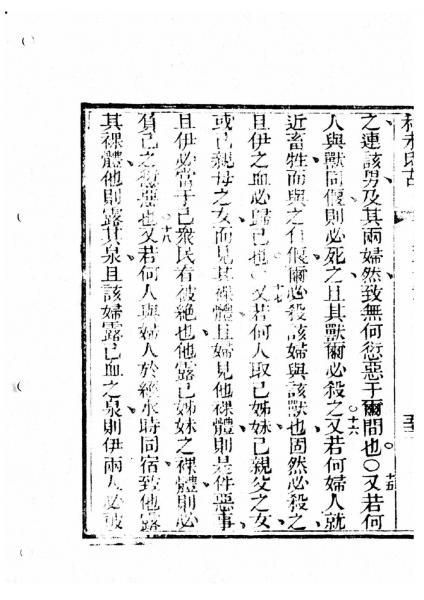 之連該男及其兩婦然致無何愆惡于爾間也〇十五又若何
人與獸同偃則必死之且其獸爾必殺之〇十六又若何婦人就
近畜牲而與之同偃爾必殺該婦與該獸也固然必殺之
且伊之血必歸己也〇十七又若何人取己姊妹己親父之女
或己親母之女而見其裸體且婦見他裸體則是件惡事
且伊必當于己眾民看被絶也他露己姊妹之裸體則必
負己之愆惡也〇十八又若何人與婦人於經水時同宿致他露
其裸體他則露其泉且該婦露己血之泉則伊兩人必被